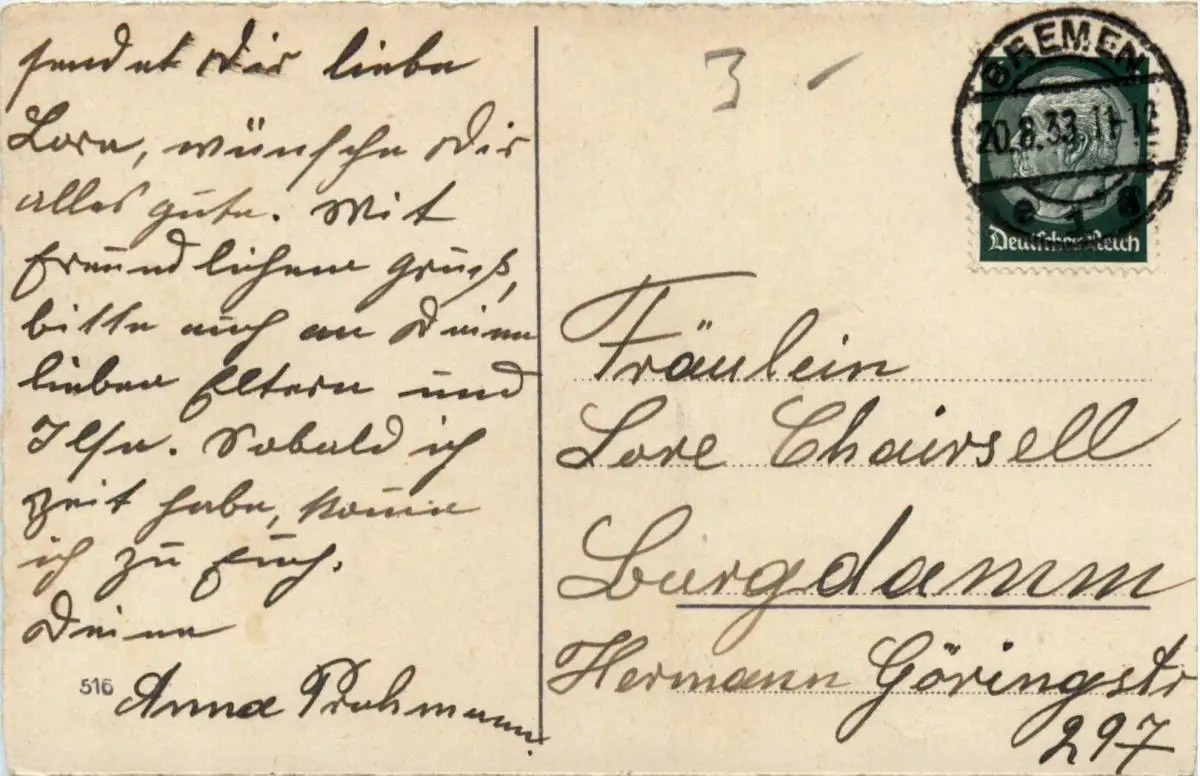 sendet Dir liebe
Lore, wünsche Dir
alles gute. Mit
freundlichem gruß,
bitte auch an Deine
lieben Eltern und
Ilse. Sobald ich
Zeit habe, komme
ich zu Euch.
Deine
Anna Prahmann.
516
3
BREMEN
20.8.33.11-12
Deutsches Reich
Fräulein
Lore Chairsell
Burgdamm
Hermann Göringstr
297